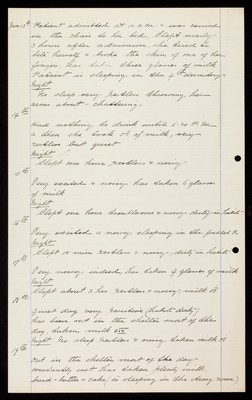 Jan 13th Patient admitted at 11 a.m & was carried
in the chair to her bed. Slept nearly
3 hours after admission she tried to
bite herself & broke the skin of one of her
fingers, has had three glasses of milk
Patient is sleeping in the dormitory
Night
No sleep very restless throwing her
arms about - chattering.
14th
Had nothing to drink until 5-20 P.M.
a then she took of milk, very
restless but quiet
Night
Slept one hour, restless & noisy
15th
Very excited & noisy has taken 6 glasses
of milk
Night
Slept one hour troublesome & noisy dirty in habits
16th
Very excited & noisy sleeping in the padded R.
Night
Slept restless & noisy, dirty in habits
17th
Very noisy indeed, has taken 9 glasses of milk
Night
Slept about 2 hrs restless & noisy, milk
18th
Quiet day very (habits dirty)
has been out in the shelter most of the
day, taken milk
Night No sleep restless & noisy taken milk
19th
out in the shelter most of the day
has taken plenty milk
bread - butter & cake, is sleeping in the room